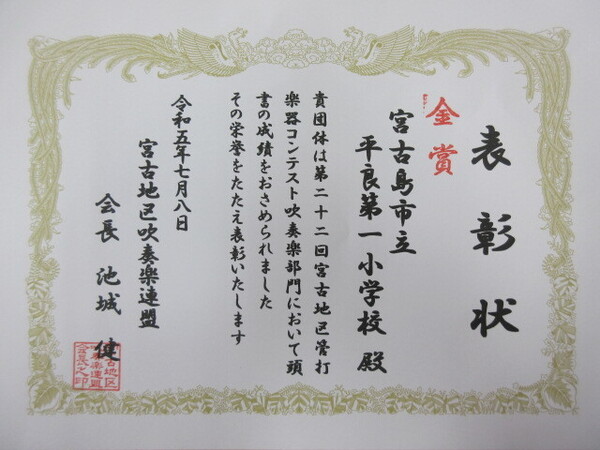 表彰状
金賞
宮古島市立
平良第一小学校 殿
貴団体は第二十二回宮古地区管打
楽器コンテスト吹奏楽部門において頭
書の成績をおさめられました
その栄誉をたたえ表彰いたします
令和五年七月八日
宮古地区吹奏楽連盟
会長 池城 健
宮古地区
吹奏楽連盟
会長之印